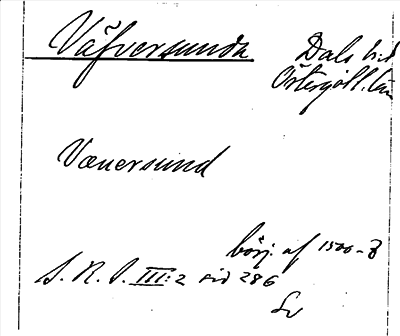 Väfversunda
Dals hd
Östergötl. län
Vænersund
börj. af 1500-t
S. R. S. III:2 sid 286
Lv